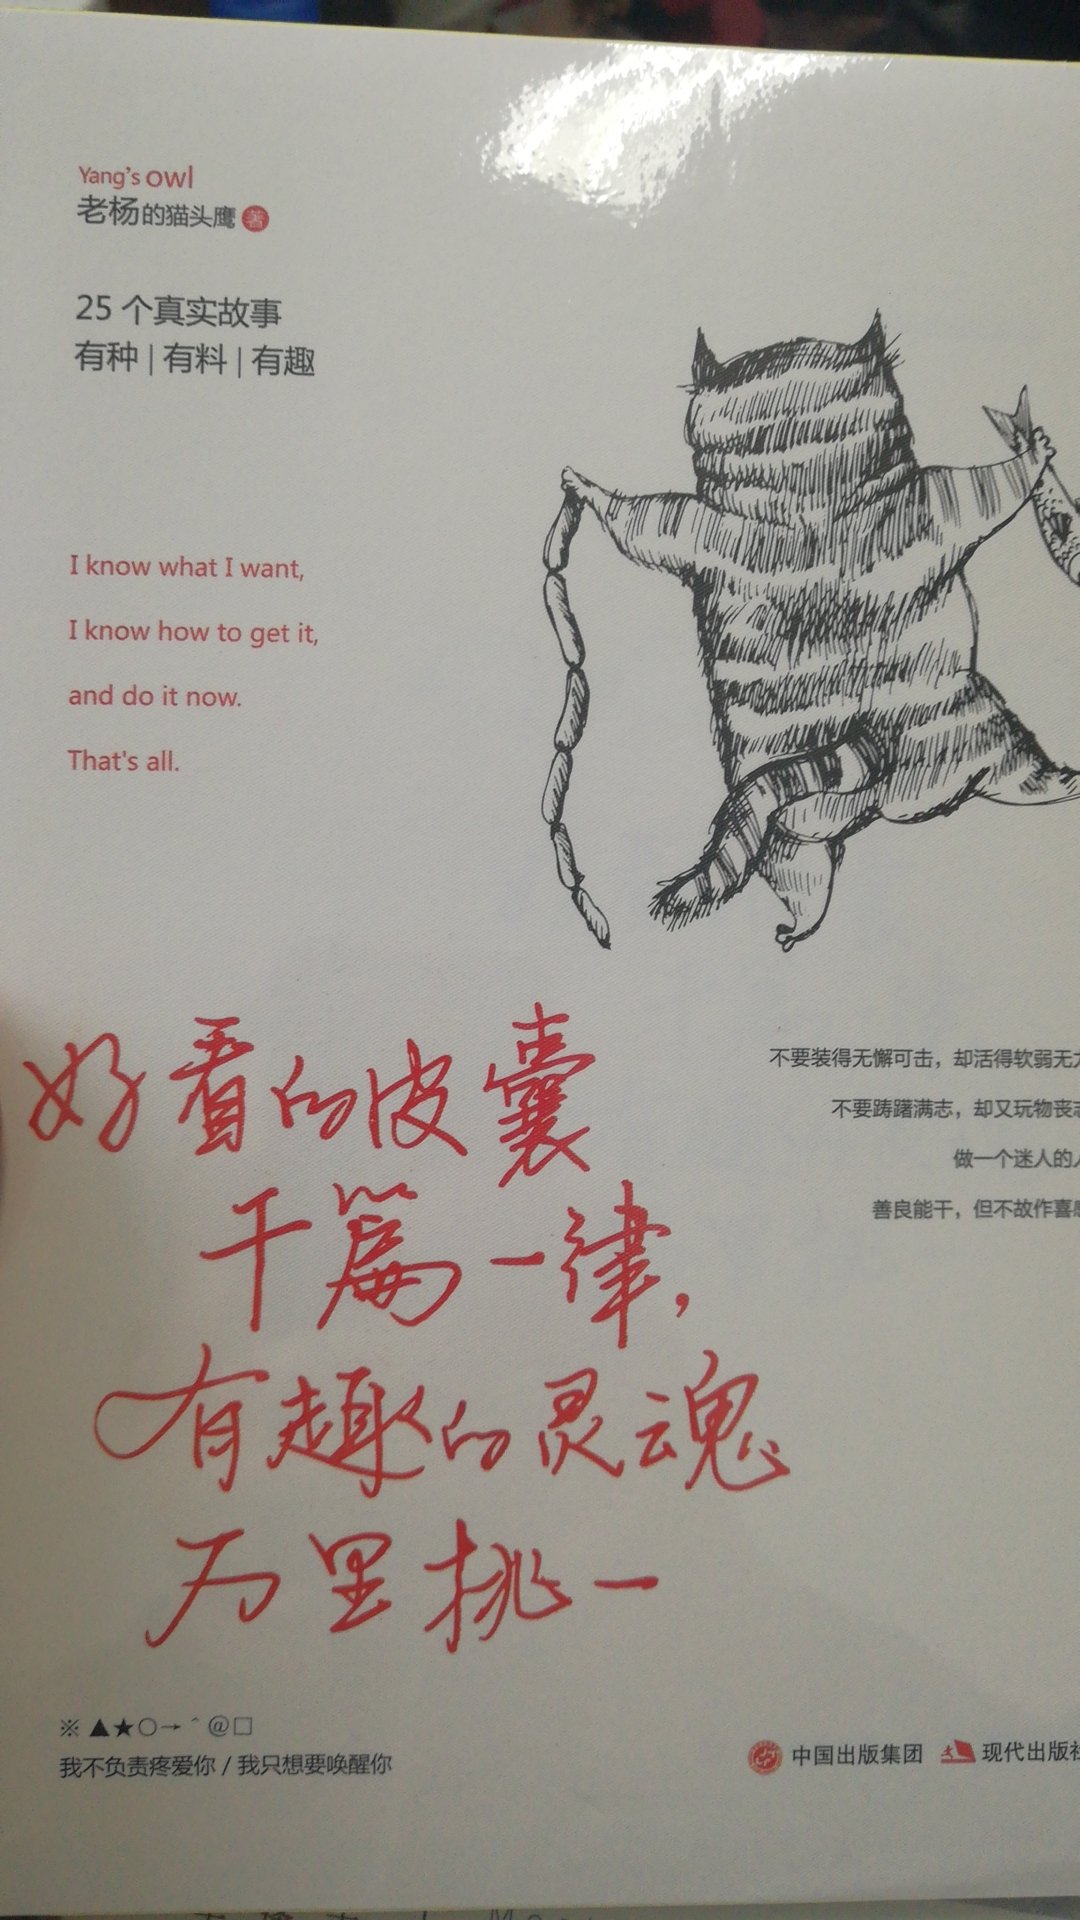 Yang's owl
老杨的猫头鹰 著
25 个真实故事
有种 | 有料 | 有趣
I know what I want,
I know how to get it,
and do it now.
That's all.
不要装得无懈可击，却活得软弱无
不要踌躇满志，却又玩物丧志
做一个迷人的
善良能干，但不故作喜
好看的皮囊
千篇一律，
有趣的灵魂
万里挑一
※ ▲★○→＾@□
我不负责疼爱你 / 我只想要唤醒你
中国出版集团 现代出版社